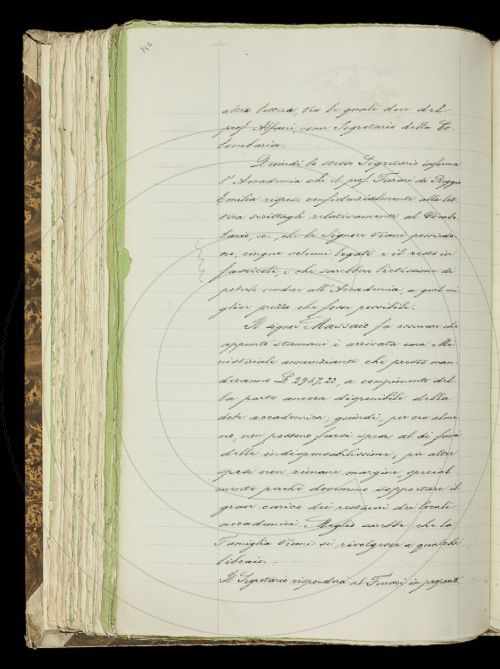 342
altra lettera, tra le quali due del
prof. Alfani, come Segretario della Co-
lombaria.
Quindi lo stesso Segretario informa
l'Accademia che il prof. Ferrari di Reggio
Emilia rispose confidenzialmente alla let-
tera scrittagli relativamente al Vocabo-
lario, ec., che le Signore Viani possiedo-
no, cinque volumi legati e il resto in
fascicoli, e che sarebbero lietissime di
poterlo vendere all'Accademia, a quel mi-
glior prezzo che fosse possibile.
Il signor Massaio fa osservare che
appunto stamani è arrivata una Mi-
nisteriale annunziante che presto man-
deranno £ 2957.22, a compimento del-
la parte ancora disponibile della
dote accademica; quindi, per ora alme-
no, non possono farsi spese al di fuori
delle indispensabilissime; per altre
spese non rimane margine, special-
mente perchè dobbiamo sopportare il
grave carico dei restauri dei locali
accademici. Meglio sarebbe che la
Famiglia Viani si rivolgesse a qualche
libraio. —
Il Segretario risponderà al Ferrari in proposito